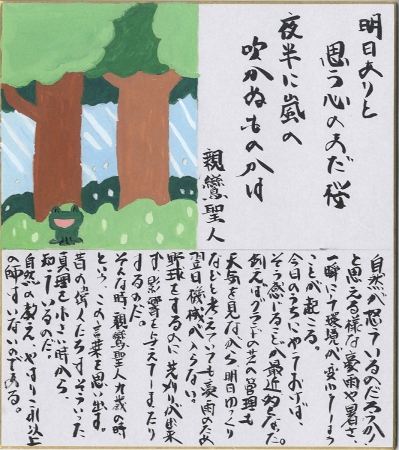 明日ありと
思う心のあだ桜
夜半に嵐の
吹かぬものかは
親鸞聖人
自然が怒っているのだろうか！
と思える様な豪雨や暑さ、
一瞬にて環境が変わってしまう
ことが起こる。
今日のうちにやっておけば、
そう感じることが最近多くなった。
例えばグランドの芝の管理も
天気を見ながら明日ゆっくり
などと考えていても豪雨のため
翌日機械が入らない。
野球をするのに芝刈りが出来
ず影響を与えてしまったり
するのだ。
そんな時、親鸞聖人九歳の時
という、この言葉を思い出す。
昔の偉人たちはすでにそういった
真理を小さい時から
知っているのだ。
自然の教え、やはりこれ以上
の師はいないのである。